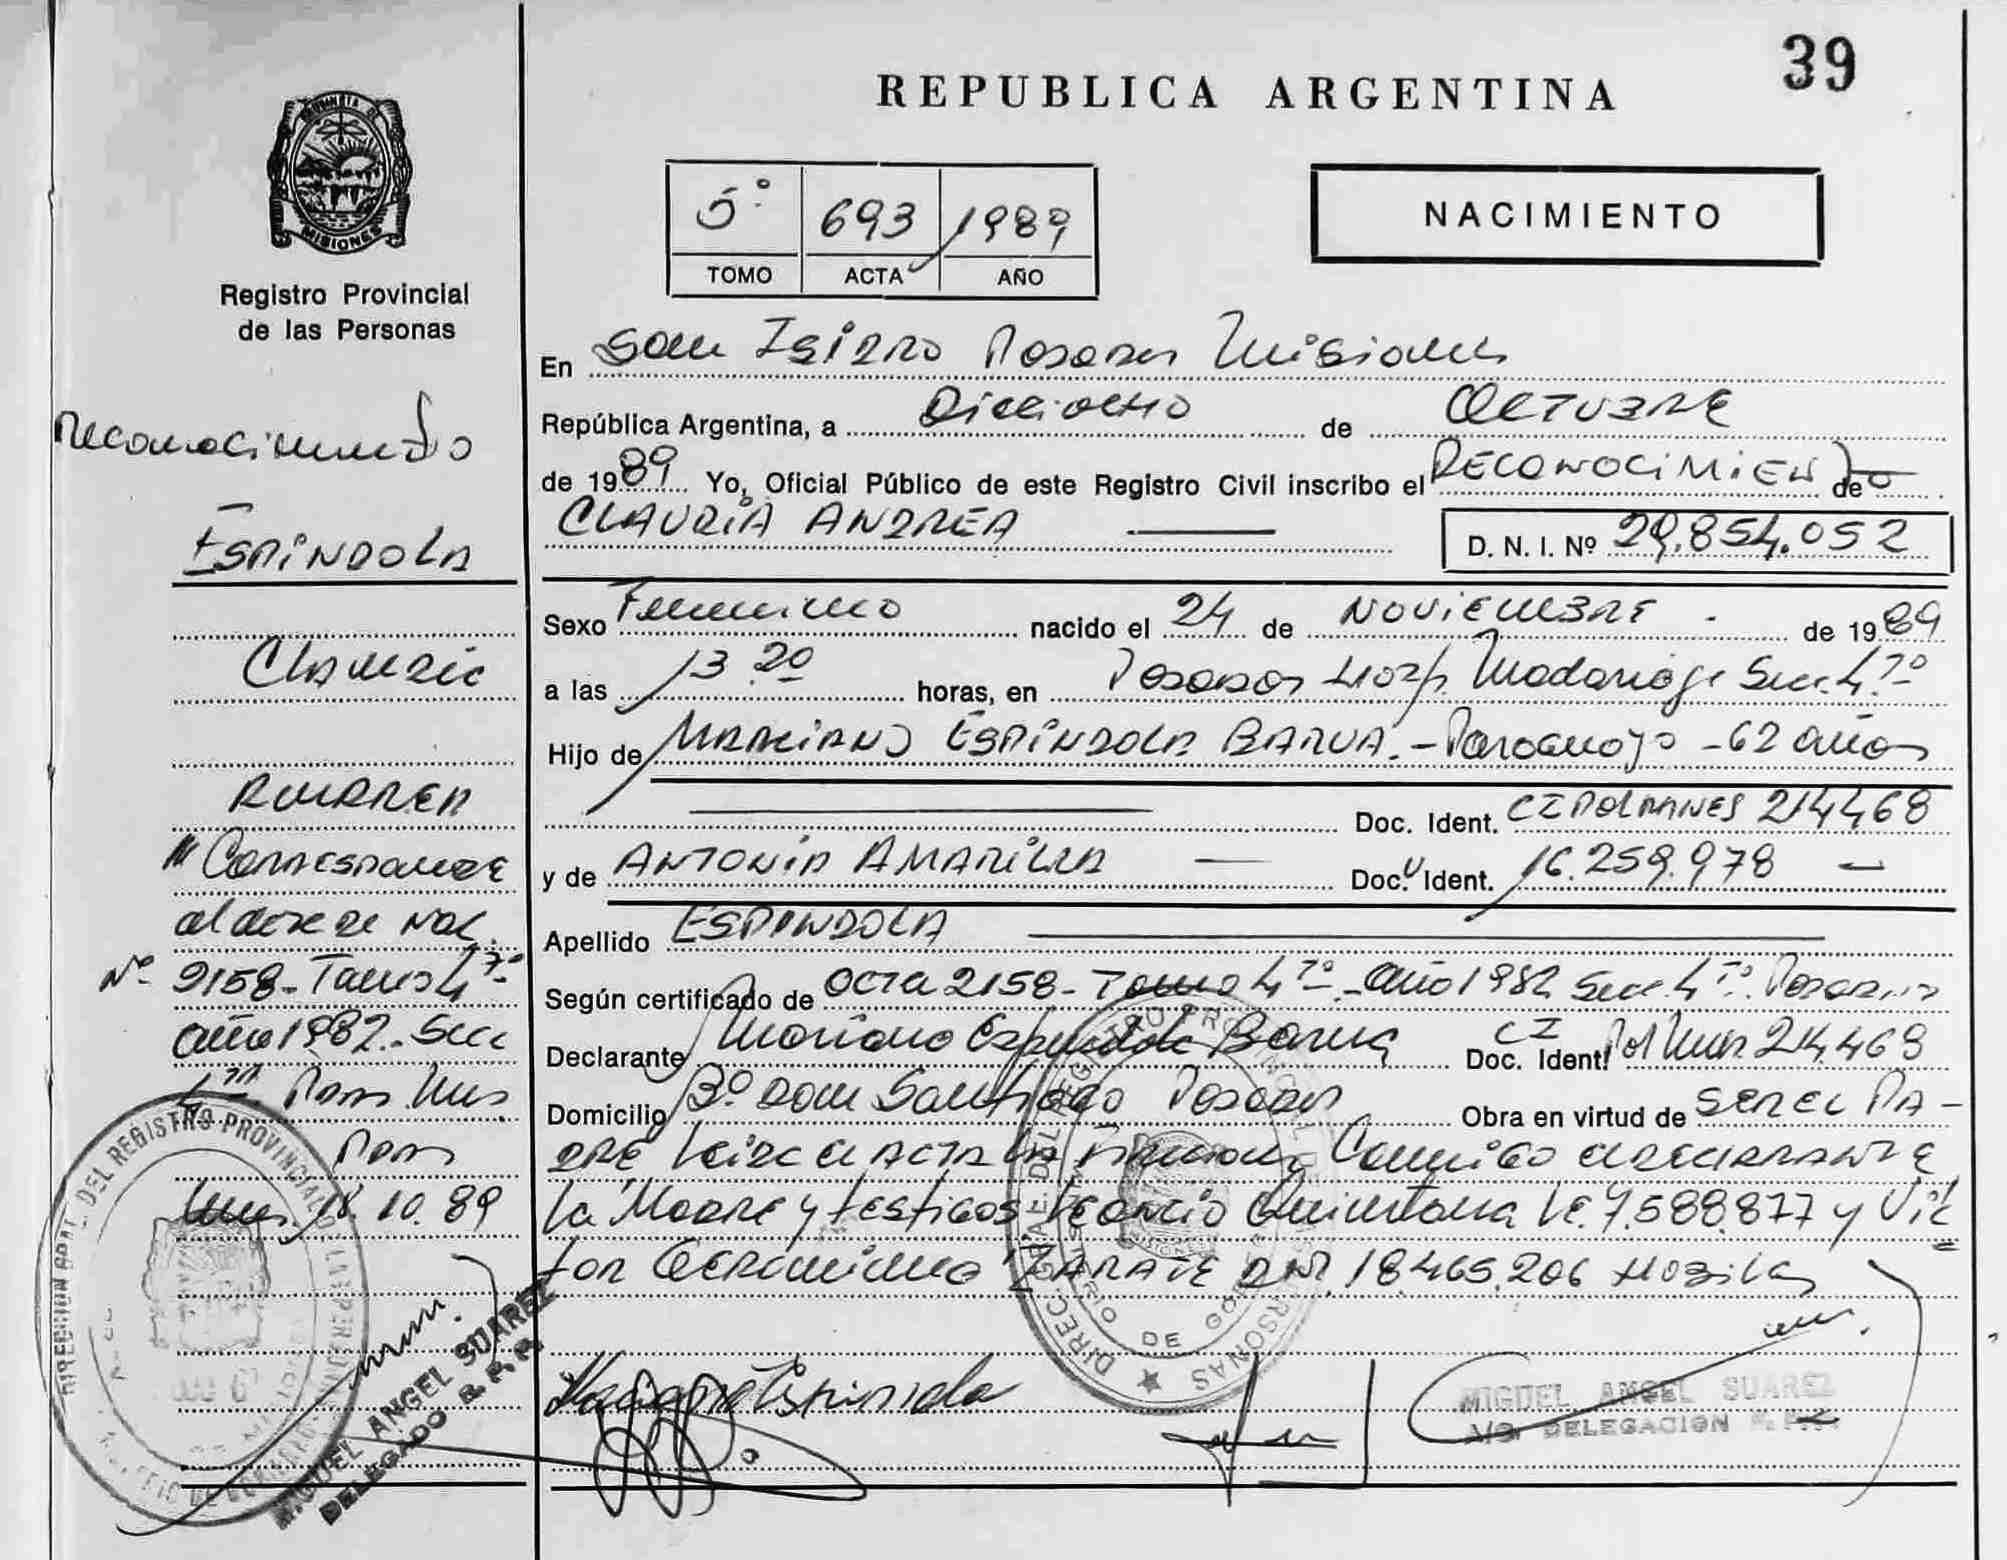 39
REPUBLICA ARGENTINA
MISIONES
Registro Provincial
de las Personas
5º 693 1989
TOMO ACTA AÑO
NACIMIENTO
Reconocimiento
ESPINDOLA
CLAUDIA
ANDREA
Corresponde
al acta de Nac.
Nº 2158- Tomo 4to
año 1982.- Secc
4ta Pdas Mnes
Pdas
Mnes. 18.10.89
En San Isidro Posadas Misiones
República Argentina, a Dieciocho de OCTUBRE
de 1989 Yo, Oficial Público de este Registro Civil inscribo el RECONOCIMIENTO de
CLAUDIA ANDREA D. N. I. Nº 29.854.052
Sexo Femenino nacido el 24 de NOVIEMBRE de 1989
a las 13 20 horas, en Posadas Hosp. Madariaga Secc. 4to
Hijo de MARCIANO ESPINDOLA BARUA.- Paraguayo - 62 años
Doc. Ident. CI POL MNES 214468
y de ANTONIA AMARILLA Doc. Ident. 16.259.978
Apellido ESPINDOLA
Según certificado de acta 2158- Tomo 4to - año 1982 Secc. 4to. Posadas
Declarante Marciano Espindola Barua Doc. Ident. CI Pol Mnes 214.468
Domicilio Bº Don Santiago Posadas Obra en virtud de SER EL PA-
DRE Leida el ACTA la Firman Conmigo el DECLARANTE
la Madre y testigos Leoncio Quintana LE. 7.588.877 y Vic
tor Geronimo ZARATE DNI 18.465.206
Marciano Espindola
MIGUEL ANGEL SUAREZ
DELEGADO R. P. P.
MIGUEL ANGEL SUAREZ
A/C. DELEGACION R. P. P.
DIRECCION GRAL. DEL REGISTRO PROVINCIAL DE LAS PERSONAS
DIREC. GRAL. DEL REGISTRO PROVINCIAL DE LAS PERSONAS